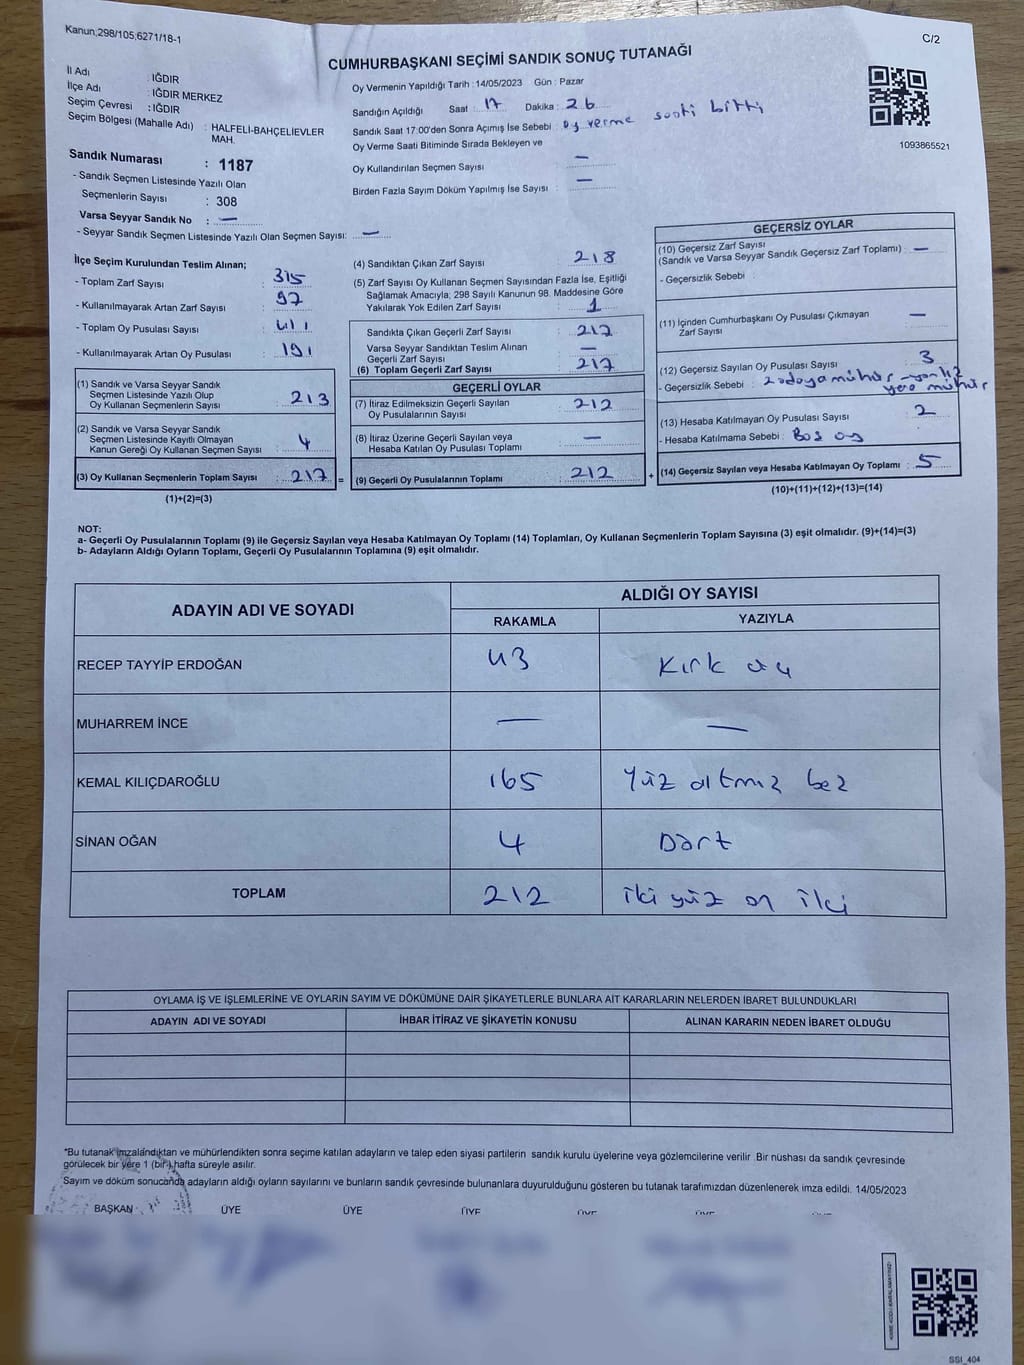 Kanun;298/105;6271/18-1
C/2
CUMHURBAŞKANI SEÇİMİ SANDIK SONUÇ TUTANAĞI
İl Adı : IĞDIR
İlçe Adı : IĞDIR MERKEZ
Seçim Çevresi : IĞDIR
Seçim Bölgesi (Mahalle Adı) : HALFELİ-BAHÇELİEVLER MAH.
Sandık Numarası : 1187
- Sandık Seçmen Listesinde Yazılı Olan
Seçmenlerin Sayısı : 308
Varsa Seyyar Sandık No : —
- Seyyar Sandık Seçmen Listesinde Yazılı Olan Seçmen Sayısı: —
Oy Vermenin Yapıldığı Tarih : 14/05/2023 Gün : Pazar
Sandığın Açıldığı Saat : 17 Dakika : 26
Sandık Saat 17:00'den Sonra Açımış İse Sebebi : oy verme saati bitti
Oy Verme Saati Bitiminde Sırada Bekleyen ve
Oy Kullandırılan Seçmen Sayısı : —
Birden Fazla Sayım Döküm Yapılmış İse Sayısı : —
1093865521
İlçe Seçim Kurulundan Teslim Alınan;
- Toplam Zarf Sayısı : 315
- Kullanılmayarak Artan Zarf Sayısı : 97
- Toplam Oy Pusulası Sayısı : 411
- Kullanılmayarak Artan Oy Pusulası : 191
(1) Sandık ve Varsa Seyyar Sandık
Seçmen Listesinde Yazılı Olup
Oy Kullanan Seçmenlerin Sayısı : 213
(2) Sandık ve Varsa Seyyar Sandık
Seçmen Listesinde Kayıtlı Olmayan
Kanun Gereği Oy Kullanan Seçmen Sayısı : 4
(3) Oy Kullanan Seçmenlerin Toplam Sayısı : 217 =
(1)+(2)=(3)
(4) Sandıktan Çıkan Zarf Sayısı : 218
(5) Zarf Sayısı Oy Kullanan Seçmen Sayısından Fazla İse, Eşitliği
Sağlamak Amacıyla; 298 Sayılı Kanunun 98. Maddesine Göre
Yakılarak Yok Edilen Zarf Sayısı : 1
Sandıkta Çıkan Geçerli Zarf Sayısı : 217
Varsa Seyyar Sandıktan Teslim Alınan
Geçerli Zarf Sayısı : —
(6) Toplam Geçerli Zarf Sayısı : 217
GEÇERLİ OYLAR
(7) İtiraz Edilmeksizin Geçerli Sayılan
Oy Pusulalarının Sayısı : 212
(8) İtiraz Üzerine Geçerli Sayılan veya
Hesaba Katılan Oy Pusulası Toplamı : —
(9) Geçerli Oy Pusulalarının Toplamı : 212 +
GEÇERSİZ OYLAR
(10) Geçersiz Zarf Sayısı
(Sandık ve Varsa Seyyar Sandık Geçersiz Zarf Toplamı) : —
- Geçersizlik Sebebi :
(11) İçinden Cumhurbaşkanı Oy Pusulası Çıkmayan
Zarf Sayısı : —
(12) Geçersiz Sayılan Oy Pusulası Sayısı : 3
- Geçersizlik Sebebi : 2 adaya mühür - yanlız
yere mühür
(13) Hesaba Katılmayan Oy Pusulası Sayısı : 2
- Hesaba Katılmama Sebebi : Boş oy
(14) Geçersiz Sayılan veya Hesaba Katılmayan Oy Toplamı : 5
(10)+(11)+(12)+(13)=(14)
NOT:
a- Geçerli Oy Pusulalarının Toplamı (9) ile Geçersiz Sayılan veya Hesaba Katılmayan Oy Toplamı (14) Toplamları, Oy Kullanan Seçmenlerin Toplam Sayısına (3) eşit olmalıdır. (9)+(14)=(3)
b- Adayların Aldığı Oyların Toplamı, Geçerli Oy Pusulalarının Toplamına (9) eşit olmalıdır.
ADAYIN ADI VE SOYADI
ALDIĞI OY SAYISI
RAKAMLA YAZIYLA
RECEP TAYYİP ERDOĞAN 43 Kırk üç
MUHARREM İNCE — —
KEMAL KILIÇDAROĞLU 165 Yüz altmız beş
SİNAN OĞAN 4 Dört
TOPLAM 212 iki yüz on iki
OYLAMA İŞ VE İŞLEMLERİNE VE OYLARIN SAYIM VE DÖKÜMÜNE DAİR ŞİKAYETLERLE BUNLARA AİT KARARLARIN NELERDEN İBARET BULUNDUKLARI
ADAYIN ADI VE SOYADI İHBAR İTİRAZ VE ŞİKAYETİN KONUSU ALINAN KARARIN NEDEN İBARET OLDUĞU
*Bu tutanak imzalandıktan ve mühürlendikten sonra seçime katılan adayların ve talep eden siyasi partilerin sandık kurulu üyelerine veya gözlemcilerine verilir .Bir nüshası da sandık çevresinde
görülecek bir yere 1 (bir ) hafta süreyle asılır.
Sayım ve döküm sonucunda adayların aldığı oyların sayılarını ve bunların sandık çevresinde bulunanlara duyurulduğunu gösteren bu tutanak tarafımızdan düzenlenerek imza edildi. 14/05/2023
BAŞKAN ÜYE ÜYE ÜYE ÜYE ÜYE
SSI_404